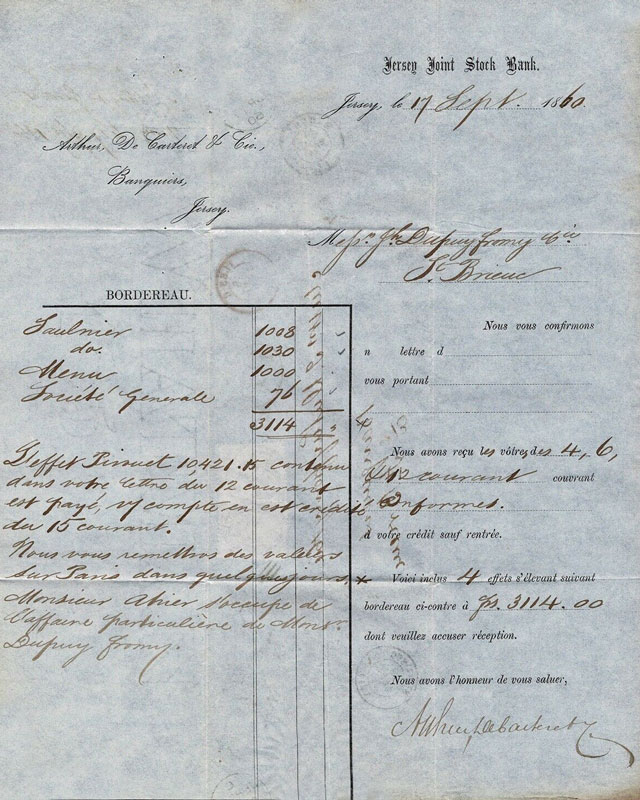 Jersey Joint Stock Bank.
Jersey, le 17 Sept. 1860.
Arthur, De Carteret & Cie.,
Banquiers,
Jersey.
Messrs. Jh. Dupuy fromy & Cie
St. Brieuc
BORDEREAU.
Saulnier 1008 "
do. 1030 "
Menu 1000 "
Société Generale 76 "
3114 "
L'effet 10,421.15 contenu
dans votre lettre du 12 courant
est payé, v/ compte en est crédité
du 15 courant.
Nous vous remettrons des valeurs
sur Paris dans quelques jours, x
Monsieur s'occupe de
l'affaire particulière de Monsr.
Dupuy fromy.
Nous vous confirmons
n lettre d
vous portant
Nous avons reçu les vôtres des 4, 6,
& 12 courant couvrant
Conformes.
à votre crédit sauf rentrée.
Voici inclus 4 effets s'élevant suivant
bordereau ci-contre à fr. 3114.00
dont veuillez accuser réception.
Nous avons l'honneur de vous saluer,
Arthur, DeCarteret